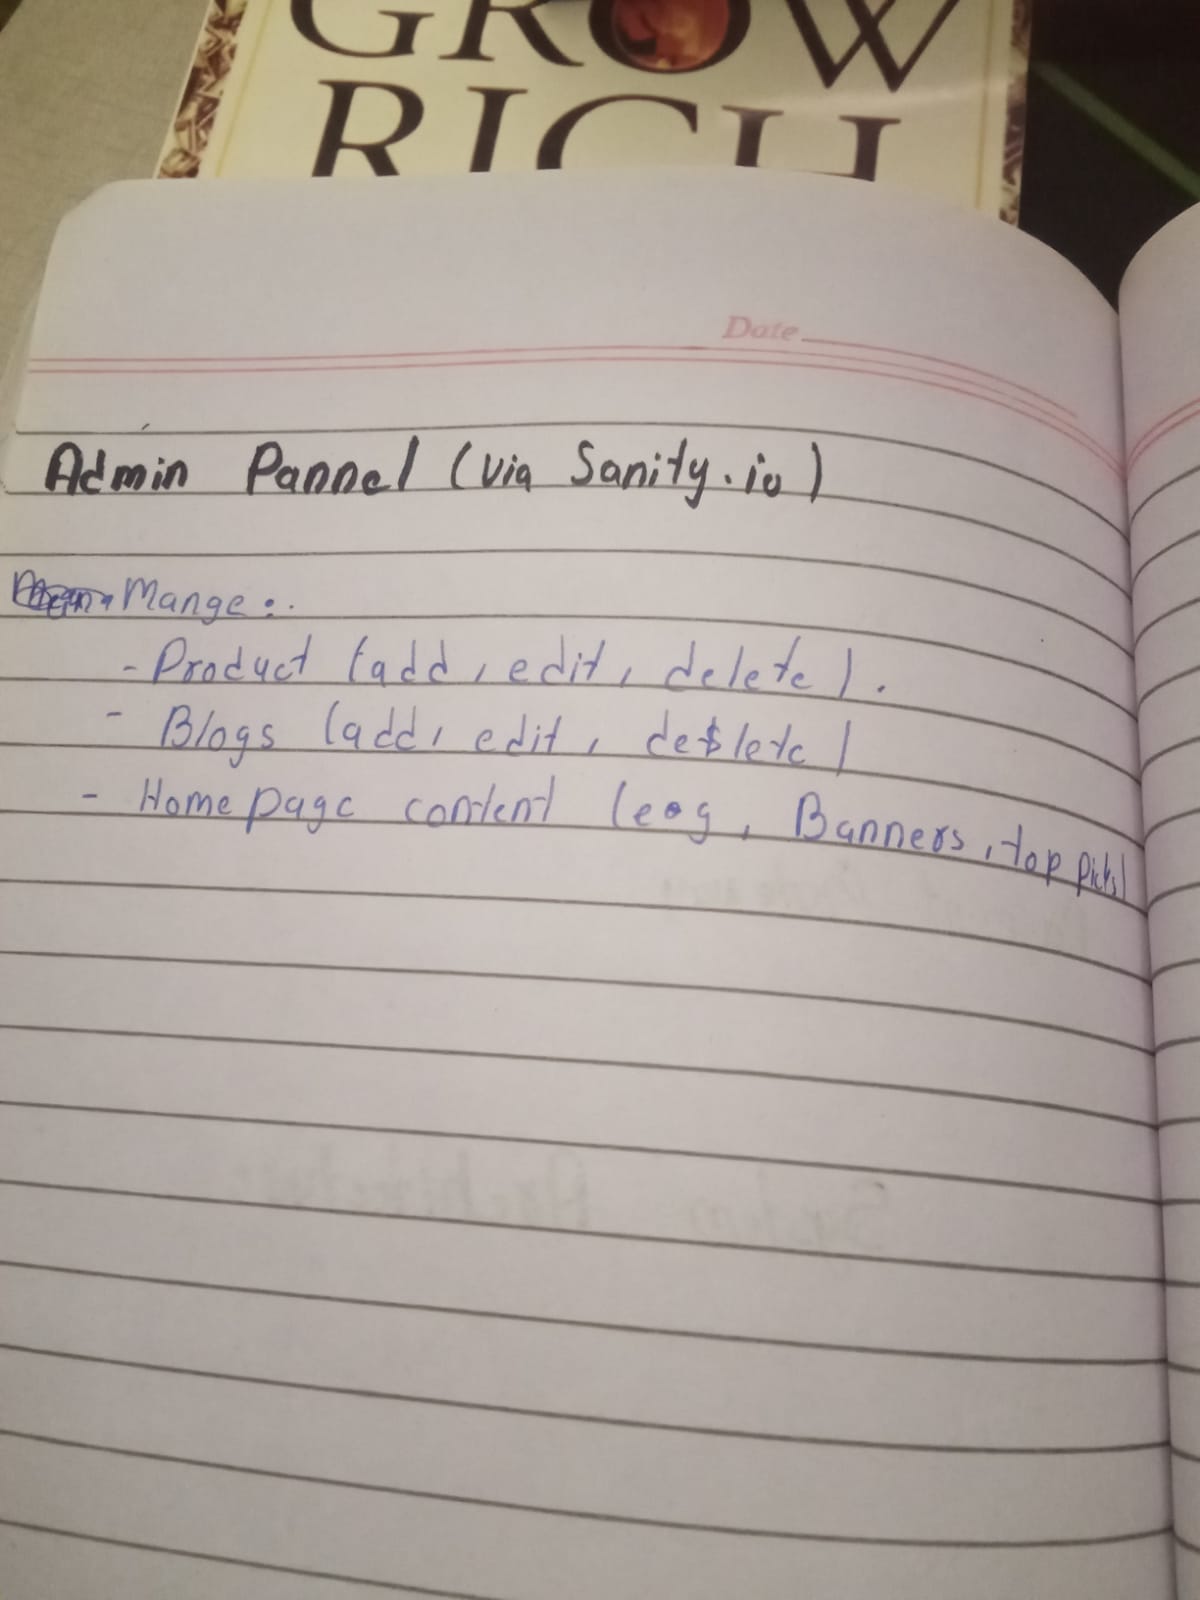 GROW
RICH
Date
Admin Pannel (via Sanity.io)
Mange:.
- Product (add, edit, delete).
- Blogs (add, edit, delete)
- Home page content (e.g, Banners, top picks)